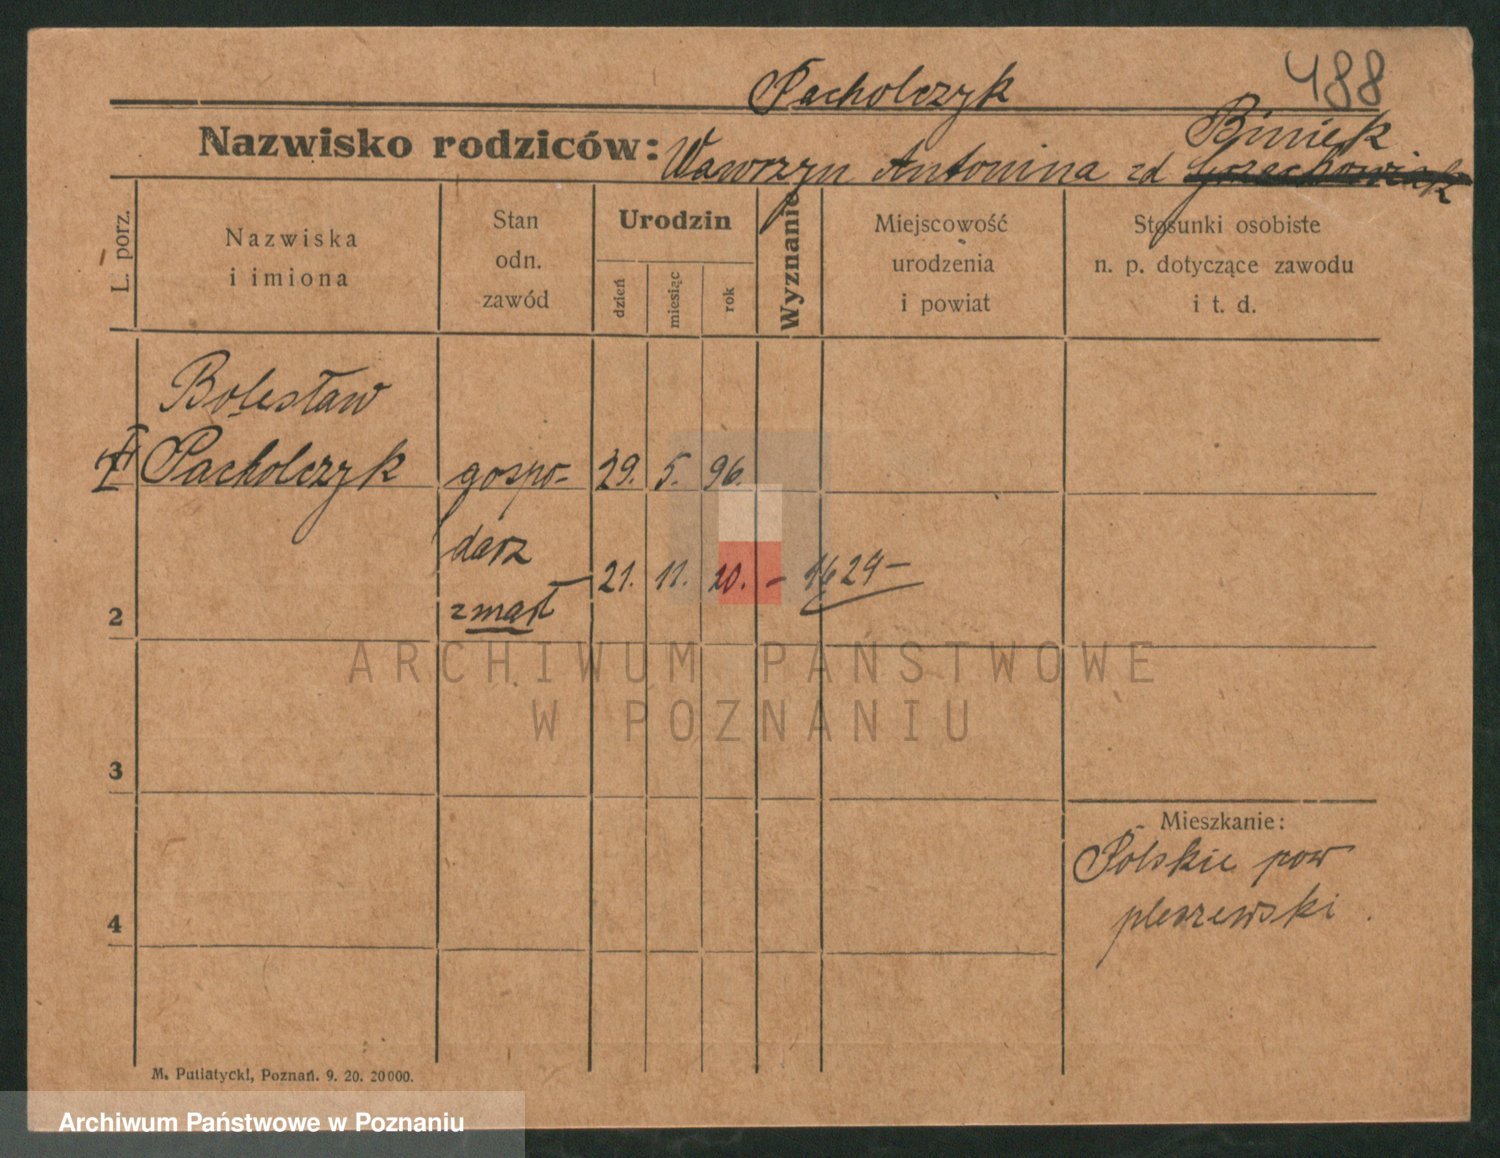 488
Pacholczyk
Biniek
Nazwisko rodziców: Wawrzyn Antonina zd
L. porz.
Nazwiska
i imiona
Stan
odn.
zawód
Urodzin
dzień
miesiąc
rok
Wyznanie
Miejscowość
urodzenia
i powiat
Stosunki osobiste
n. p. dotyczące zawodu
i t. d.
Bolesław
Pacholczyk gospo- 29. 5. 96.
darz
zmarł 21. 11. 20. - 1624-
2
3
4
Mieszkanie:
Polskie pow
pleszewski.
M. Putiatycki, Poznań. 9. 20. 20000.
ARCHIWUM PAŃSTWOWE
W POZNANIU
Archiwum Państwowe w Poznaniu